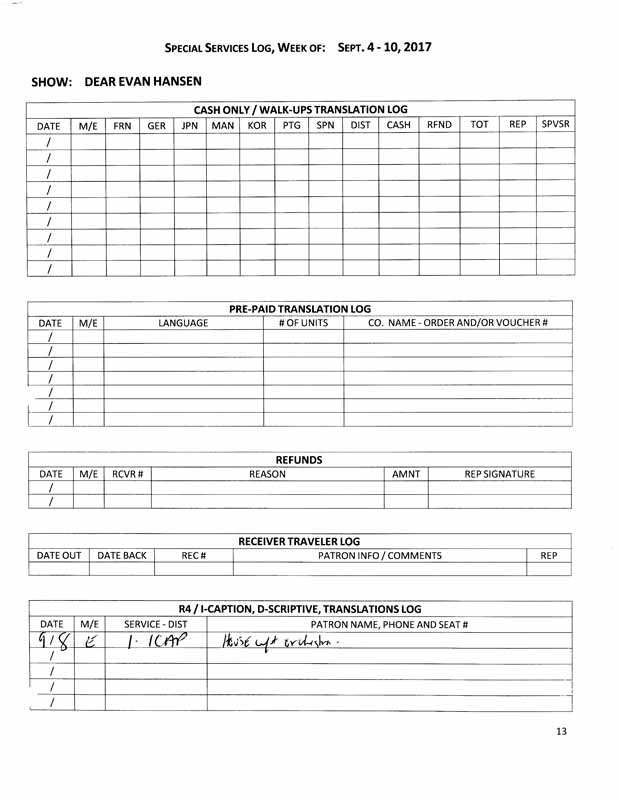 SPECIAL SERVICES LOG, WEEK OF: SEPT. 4 - 10, 2017
SHOW: DEAR EVAN HANSEN
CASH ONLY / WALK-UPS TRANSLATION LOG
DATE M/E FRN GER JPN MAN KOR PTG SPN DIST CASH RFND TOT REP SPVSR
/
/
/
/
/
/
/
/
/
PRE-PAID TRANSLATION LOG
DATE M/E LANGUAGE # OF UNITS CO. NAME - ORDER AND/OR VOUCHER #
/
/
/
/
/
/
/
REFUNDS
DATE M/E RCVR # REASON AMNT REP SIGNATURE
/
/
RECEIVER TRAVELER LOG
DATE OUT DATE BACK REC # PATRON INFO / COMMENTS REP
R4 / I-CAPTION, D-SCRIPTIVE, TRANSLATIONS LOG
DATE M/E SERVICE - DIST PATRON NAME, PHONE AND SEAT #
9/8 E 1 - ICAP House left orchestra.
/
/
/
/
13